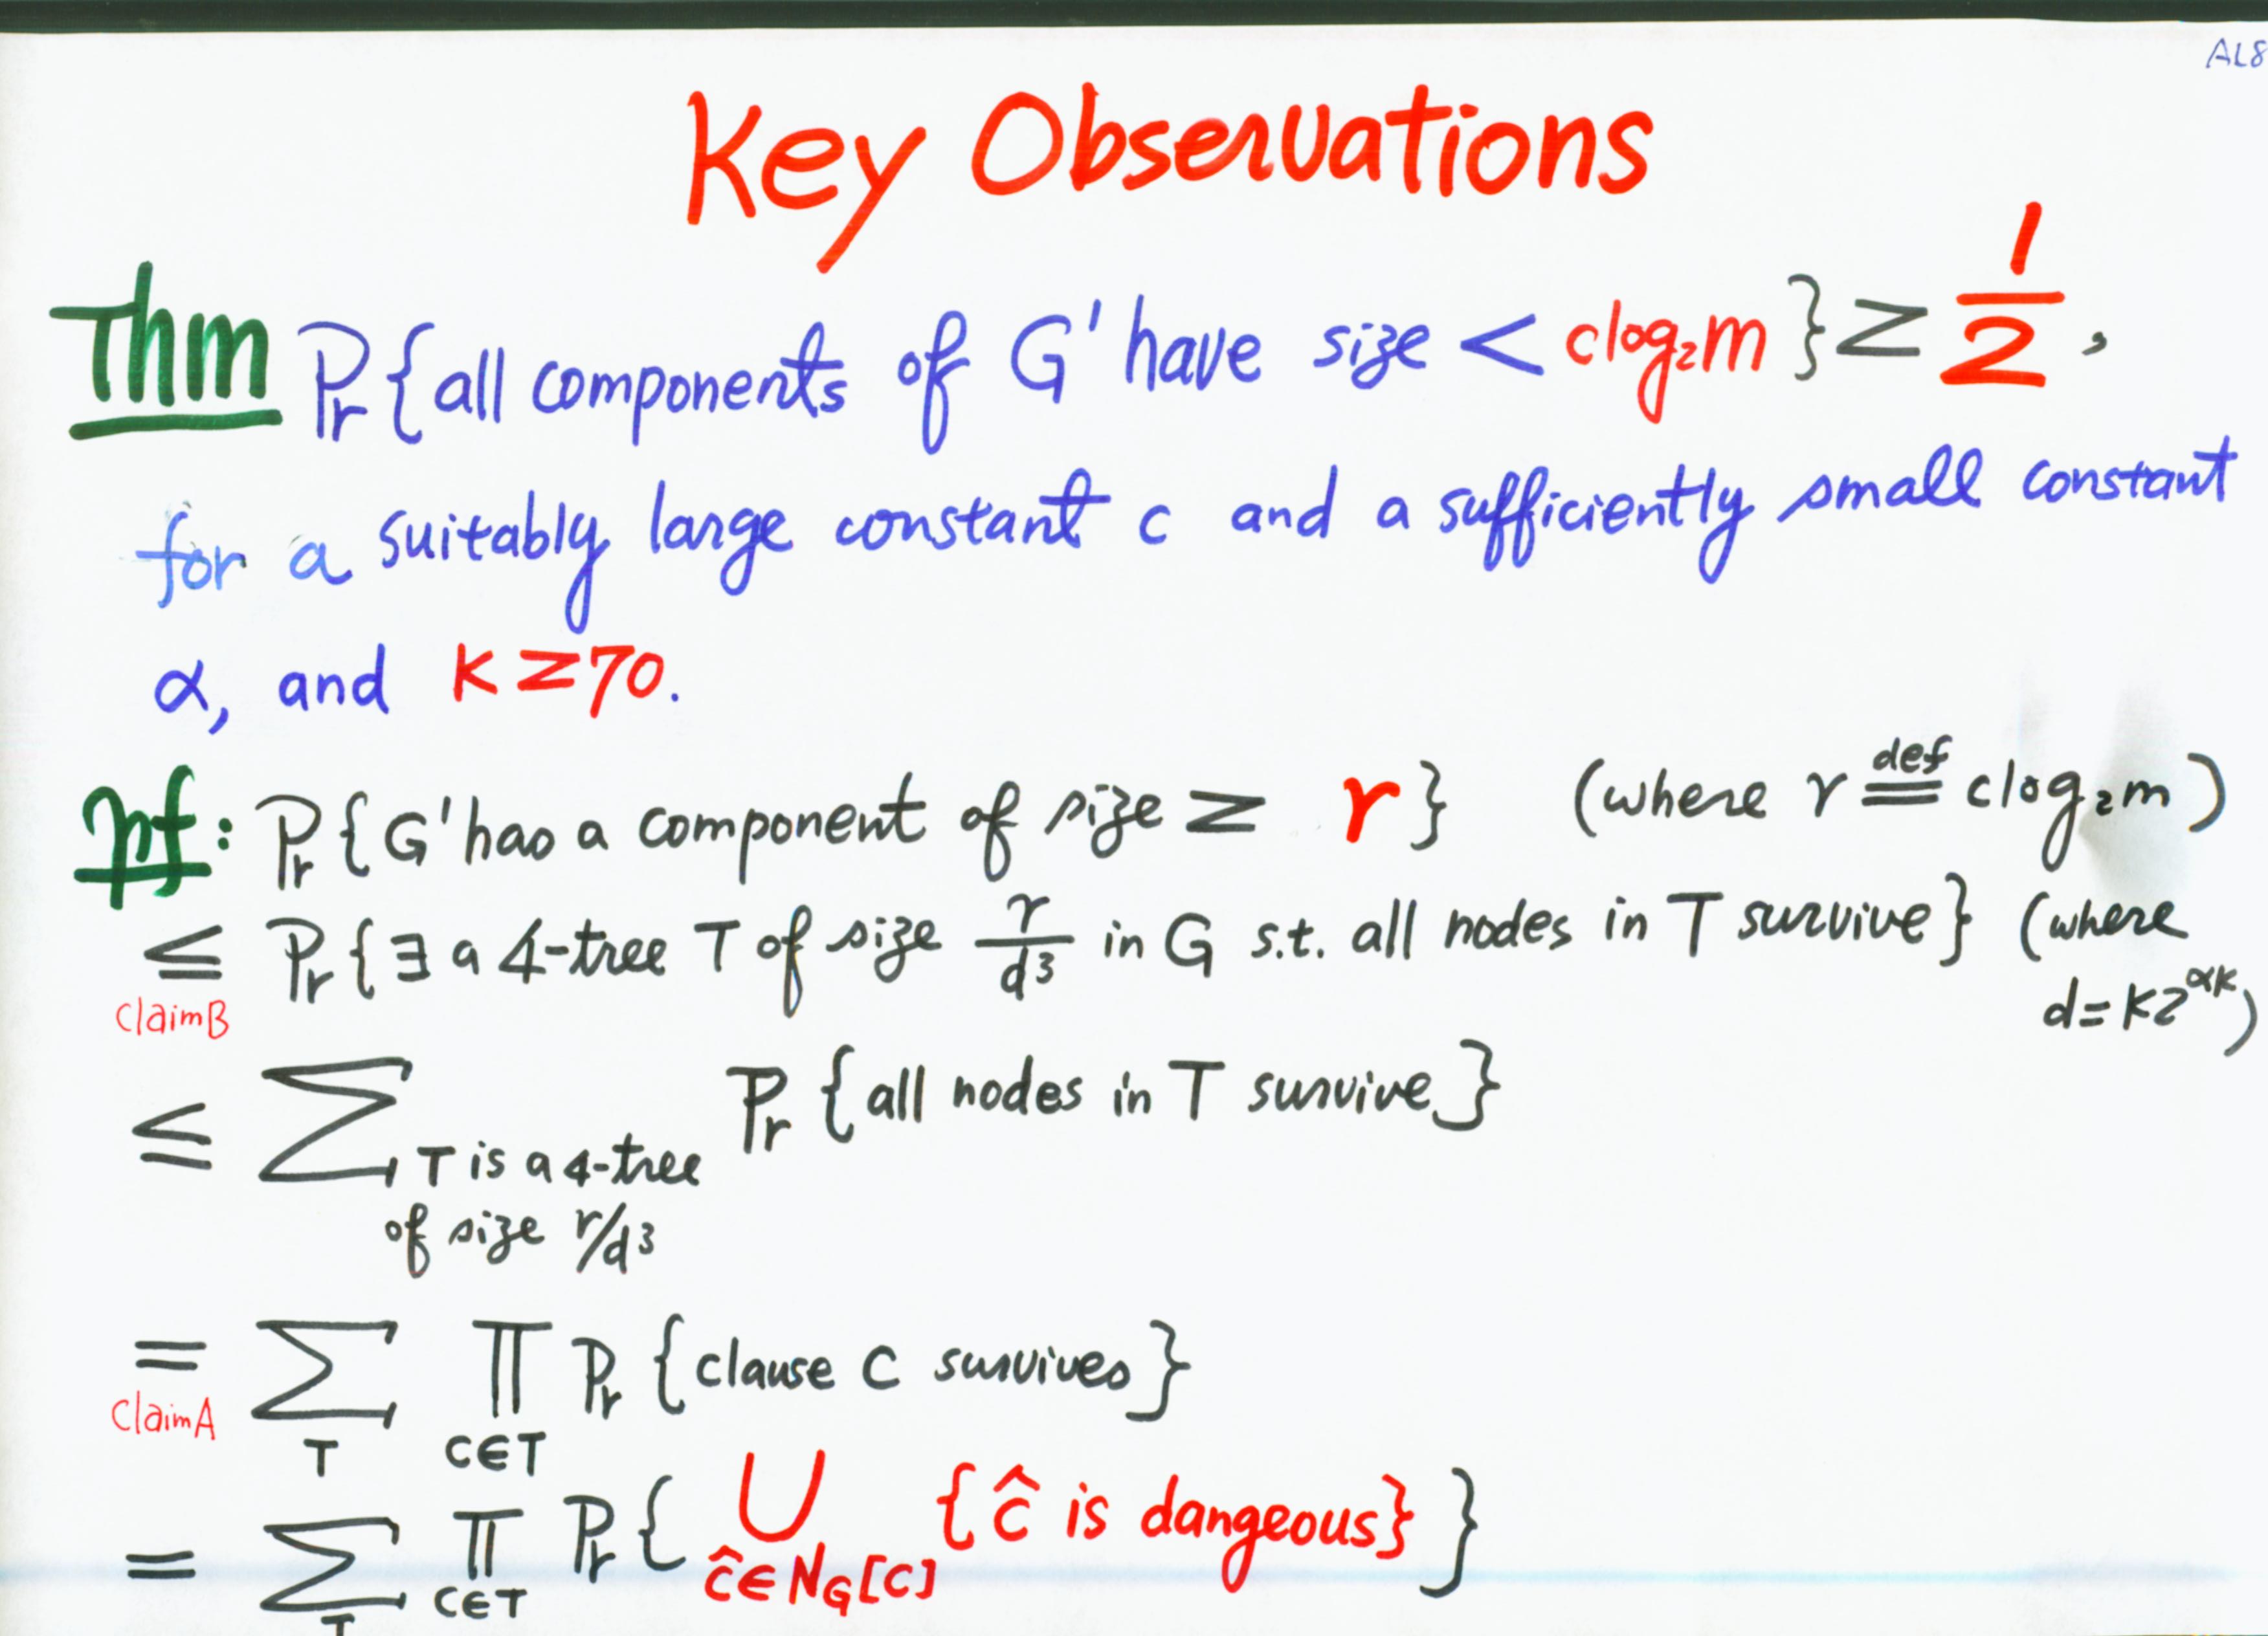 AL8
Key Observations
Thm Pr{all components of G' have size < clog₂m} ≥ 1/2,
for a suitably large constant c and a sufficiently small constant
α, and k ≥ 70.
pf: Pr{G' has a component of size ≥ r} (where r ≝ clog₂m)
≤ Pr{∃ a 4-tree T of size r/d³ in G s.t. all nodes in T survive} (where
claimB d = k2^{αk})
≤ ∑ T is a 4-tree of size r/d³ Pr{all nodes in T survive}
= ∑_T ∏_{C∈T} Pr{clause C survives}
claimA
= ∑_T ∏_{C∈T} Pr{ ∪_{ĉ∈N_G[C]} {ĉ is dangeous} }